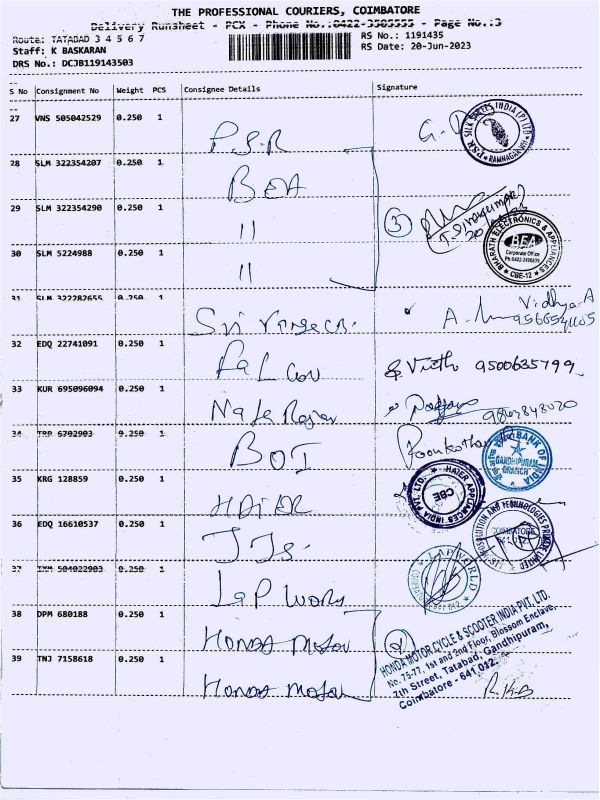 THE PROFESSIONAL COURIERS, COIMBATORE
Delivery Runsheet - PCX - Phone No.:0422-3505555 - Page No.:3
Route: TATABAD 3 4 5 6 7
Staff: K BASKARAN
DRS No.: DCJB119143503
RS No.: 1191435
RS Date: 20-Jun-2023
S No Consignment No Weight PCS Consignee Details Signature
27 VNS 505042529 0.250 1 P.S.R
PSR SILK SALES INDIA (P) LTD RAMNAGAR
28 SLM 322354207 0.250 1 BEA
29 SLM 322354290 0.250 1 "
3
BHARATH ELECTRONICS & APPLIANCES
BEA
Corporate Office
CBE-12
30 SLM 5224988 0.250 1 "
31 SLM 322282655 0.250 1 Sri
Vidhya A
32 EDQ 22741091 0.250 1 Falcon 9500635799
33 KUR 695096094 0.250 1
34 TRP 6702903 0.250 1 BOI
BANK OF INDIA
GANDHIPURAM
BRANCH
35 KRG 128859 0.250 1 HAIER
HAIER APPLIANCES INDIA PVT. LTD.
CBE
36 EDQ 16610537 0.250 1
37 504022903 0.250 1 Lap World
LAP WORLD
38 DPM 680188 0.250 1 Honda Motor
2
HONDA MOTOR CYCLE & SCOOTER INDIA PVT. LTD.
No. 75-77, 1st and 2nd Floor, Blossom Enclave,
7th Street, Tatabad, Gandhipuram,
Coimbatore - 641 012.
39 TNJ 7158618 0.250 1 Honda Motor